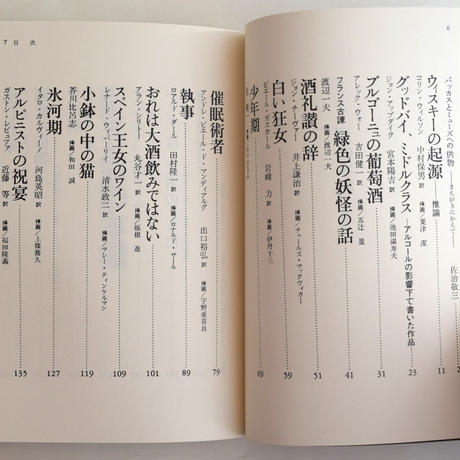 6
バッカスとミューズへの供物
――まえがきにかえて――
佐治敬三
2
ウィスキーの起源 推論
コリン・ウィルソン 中村保男訳 挿画／粟津 潔
11
グッドバイ、ミドルクラス ――アルコールの影響下で書いた作品
ジョン・アップダイク 宮本陽吉訳 挿画／池田満寿夫
23
ブルゴーニュの葡萄酒
アレック・ウォー 吉田健一訳 挿画／五辻 盈
31
フランス古譚 緑色の妖怪の話
渡辺一夫 挿画／渡辺一夫
41
酒礼讃の辞
ジョン・チーヴァー 井上謙治訳 挿画／チャールズ・マックヴィカー
51
白い狂女
ピエール・ガスカール 岩崎 力訳 挿画／伊丹十三
59
少年期
69
7 目 次
催眠術者
アンドレ・ピエール・ド・マンディアルグ 出口裕弘訳 挿画／宇野亜喜良
79
執事
ロアルド・ダール 田村隆一訳 挿画／ロナルド・サール
89
おれは大酒飲みではない
アラン・シリトー 丸谷才一訳 挿画／坂根 進
101
スペイン王女のワイン
レナード・ウィバーリイ 清水政二訳 挿画／マレー・ティンケルマン
109
小鉢の中の猫
芥川比呂志 挿画／和田 誠
119
氷河期
イタロ・カルヴィーノ 河島英昭訳 挿画／上條喬久
127
アルピニストの祝宴
ガストン・レビュファ 近藤 等訳 挿画／福田隆義
135